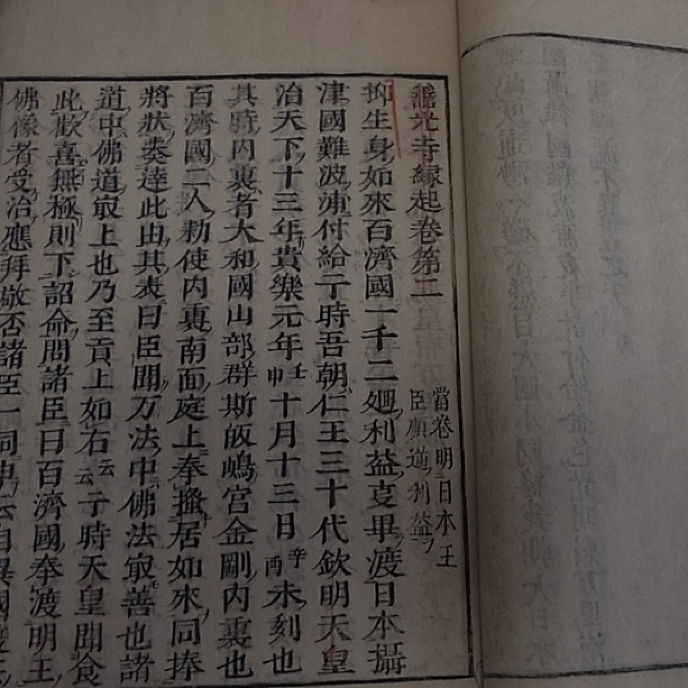 善光寺縁起卷第二
當卷明日本王
臣願道利益ヲ
抑生身如來百濟國一千二廻利益㕝畢渡日本攝
津國難波浦付給于時吾朝仁王三十代欽明天皇
治天下十三年貴樂元年壬申十月十三日辛酉未刻也
其時内裏者大和國山部群斯皈嶋宮金剛内裏也
百濟國二人勅使内裏南面庭上奉搔居如來同捧
將狀奏達此由其表曰臣聞万法中佛法㝡善也諸
道中佛道㝡上也乃至貢上如右云云于時天皇聞食
此歡喜無極則下詔命問諸臣曰百濟國奉渡明王
佛像者受治應拜敬否諸臣一同申云自異國